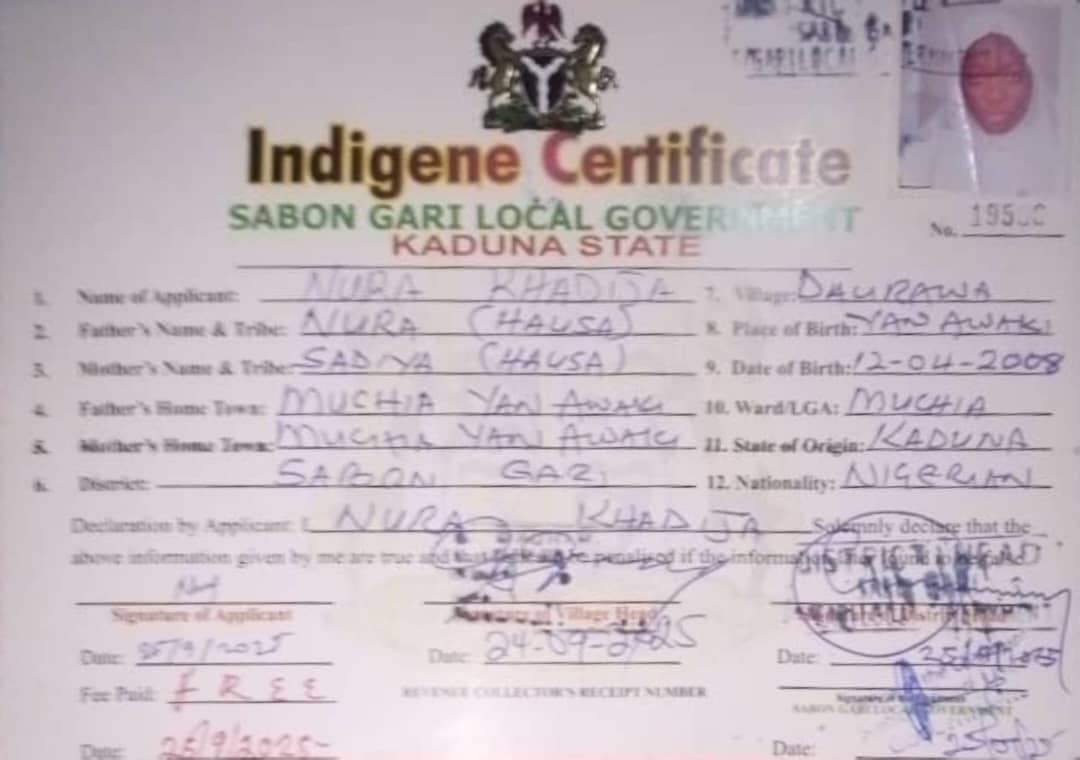 Indigene Certificate
SABON GARI LOCAL GOVERNMENT
KADUNA STATE
No.
1. Name of Applicant: NURA KHADIJA 7. Village: DAURAWA
2. Father's Name & Tribe: NURA (HAUSA) 8. Place of Birth: YAN AWAKI
3. Mother's Name & Tribe: SADIYA (HAUSA) 9. Date of Birth: 12-04-2008
4. Father's Home Town: MUCHIA YAN AWAKI 10. Ward/LGA: MUCHIA
5. Mother's Home Town: MUCHIA YAN AWAKI 11. State of Origin: KADUNA
6. District: SABON GARI 12. Nationality: NIGERIAN
Declaration by Applicant: I, NURA KHADIJA Solemnly declare that the
above information given by me are true and that penalised if the information
Signature of Applicant Signature of Village Head
Date: 25/9/2025 Date: 24-09-2025 Date:
Fee Paid: FREE REVENUE COLLECTOR'S RECEIPT NUMBER
SABON GARI LOCAL GOVERNMENT
Date: 25/9/2025 Date: